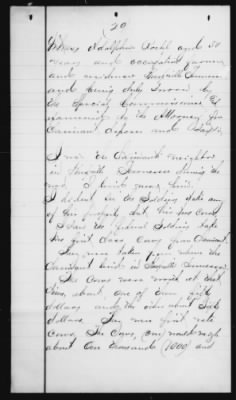 (20)
Witness Adolphus       aged 50
years and occupation farmer
and residence           Tennessee
and being duly sworn, by
the Special Commissioner &
examined by the Attorney for
Claimant deposes and says
I was the Claimant's neighbor
in             Tennessee during the
war. I lived near him.
I did not see the Soldiers take any
of his property but his two Cows.
I saw the Federal Soldiers take
two first class Cows from Claimant.
They were taken from where the
Claimant lived in             Tennessee.
The Cows were worth at that
time, about, one of them fifty
dollars and the other about
dollars. They were first rate
Cows. The Cows, (one) would weigh
about One thousand (1000) and